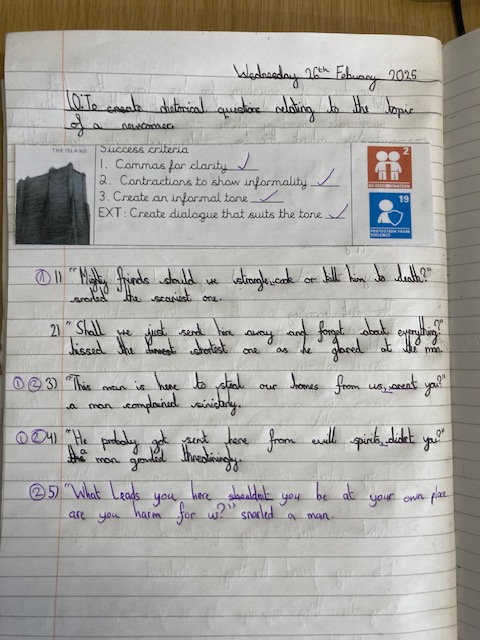 Wednesday 26th Febuary 2025
LO: To create rhetorical questions relating to the topic
of a newcomer.
THE ISLAND
Success criteria
1. Commas for clarity ✓
2. Contractions to show informality ✓
3. Create an informal tone ✓
EXT: Create dialogue that suits the tone ✓
2
NO DISCRIMINATION
19
PROTECTION FROM
VIOLENCE
① 1) "Mighty friends should we strangle, cook or kill him to death?"
the scariest one.
2) "Shall we just send him away and forget about everything?"
hissed the shortest one as he glared at the man.
① ② 3) "This man is here to steal our homes from us, arent you?"
a man complained sinisterly.
① ② 4) "He probaly got sent here from evill spirits, didnt you?"
the man growled threatiningly.
② 5) "What leads you here shouldnt you be at your own place
are you harm for us?" snarled a man.